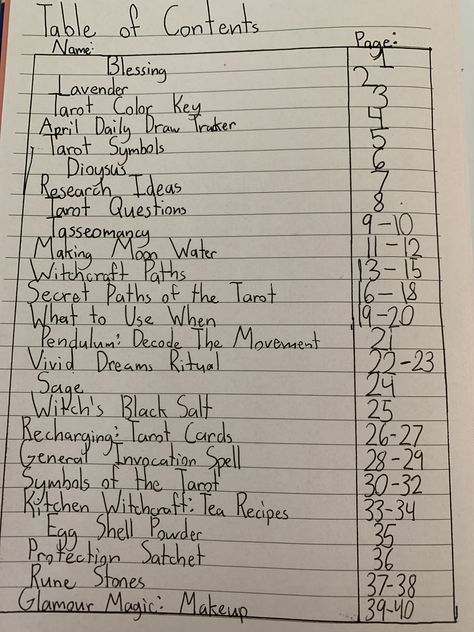 Table of Contents
Name: Page:
Blessing 1
Lavender 2
Tarot Color Key 3
April Daily Draw Tracker 4
Tarot Symbols 5
Dioysus 6
Research Ideas 7
Tarot Questions 8
Tasseomancy 9-10
Making Moon Water 11-12
Witchcraft Paths 13-15
Secret Paths of the Tarot 16-18
What to Use When 19-20
Pendulum: Decode The Movement 21
Vivid Dreams Ritual 22-23
Sage 24
Witch's Black Salt 25
Recharging: Tarot Cards 26-27
General Invocation Spell 28-29
Symbols of the Tarot 30-32
Kitchen Witchcraft: Tea Recipes 33-34
Egg Shell Powder 35
Protection Satchet 36
Rune Stones 37-38
Glamour Magic: Makeup 39-40